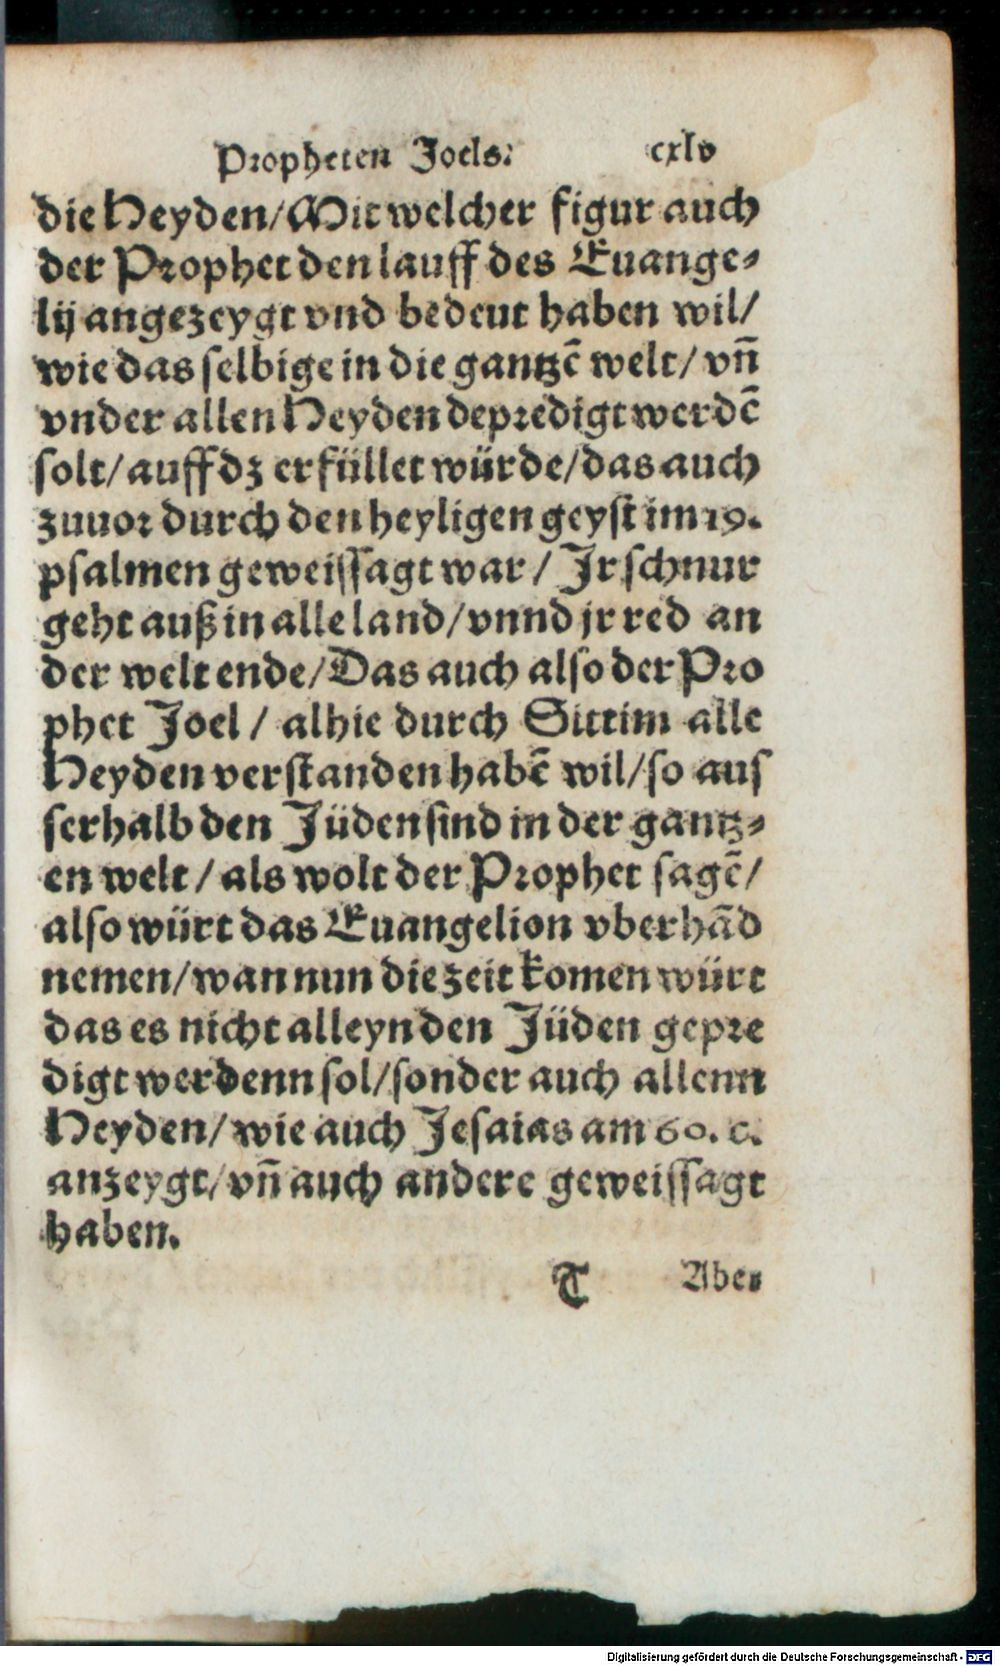 Propheten Joels. cxlv
die Heyden/Mit welcher figur auch
der Prophet den lauff des Euange-
lij angezeygt vnd bedeut haben wil/
wie das selbige in die gantzē welt/ vn̄
vnder allen Heyden depredigt werdē
solt/ auff dz erfüllet würde/das auch
zuuor durch den heyligen geyst im 19.
psalmen geweissagt war/ Jr schnur
geht auß in alle land/vnnd jr red an
der welt ende/Das auch also der Pro
phet Joel/ alhie durch Sittim alle
Heyden verstanden habē wil/so aus
serhalb den Jüden sind in der gantz-
en welt/ als wolt der Prophet sagē/
also würt das Euangelion vberhād
nemen/wan nun die zeit komen würt
das es nicht alleyn den Jüden gepre
digt werdenn sol/sonder auch allenn
Heyden/ wie auch Jesaias am 60. c.
anzeygt/vn̄ auch andere geweissagt
haben.
T Aber
Digitalisierung gefördert durch die Deutsche Forschungsgemeinschaft - DFG